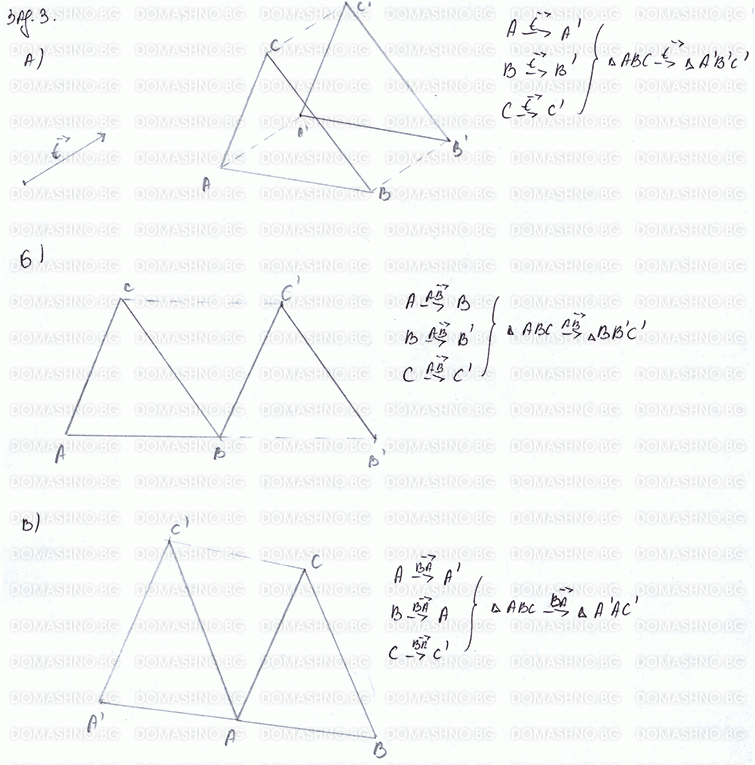 Зад. 3.
А)
t→
C'
C
A'
B'
A
B
A —t→ A'
B —t→ B'
C —t→ C'
△ABC —t→ △A'B'C'
Б)
C
C'
A
B
B'
A —AB→ B
B —AB→ B'
C —AB→ C'
△ABC —AB→ △BB'C'
В)
C'
C
A'
A
B
A —BA→ A'
B —BA→ A
C —BA→ C'
△ABC —BA→ △A'AC'
DOMASHNO.BG